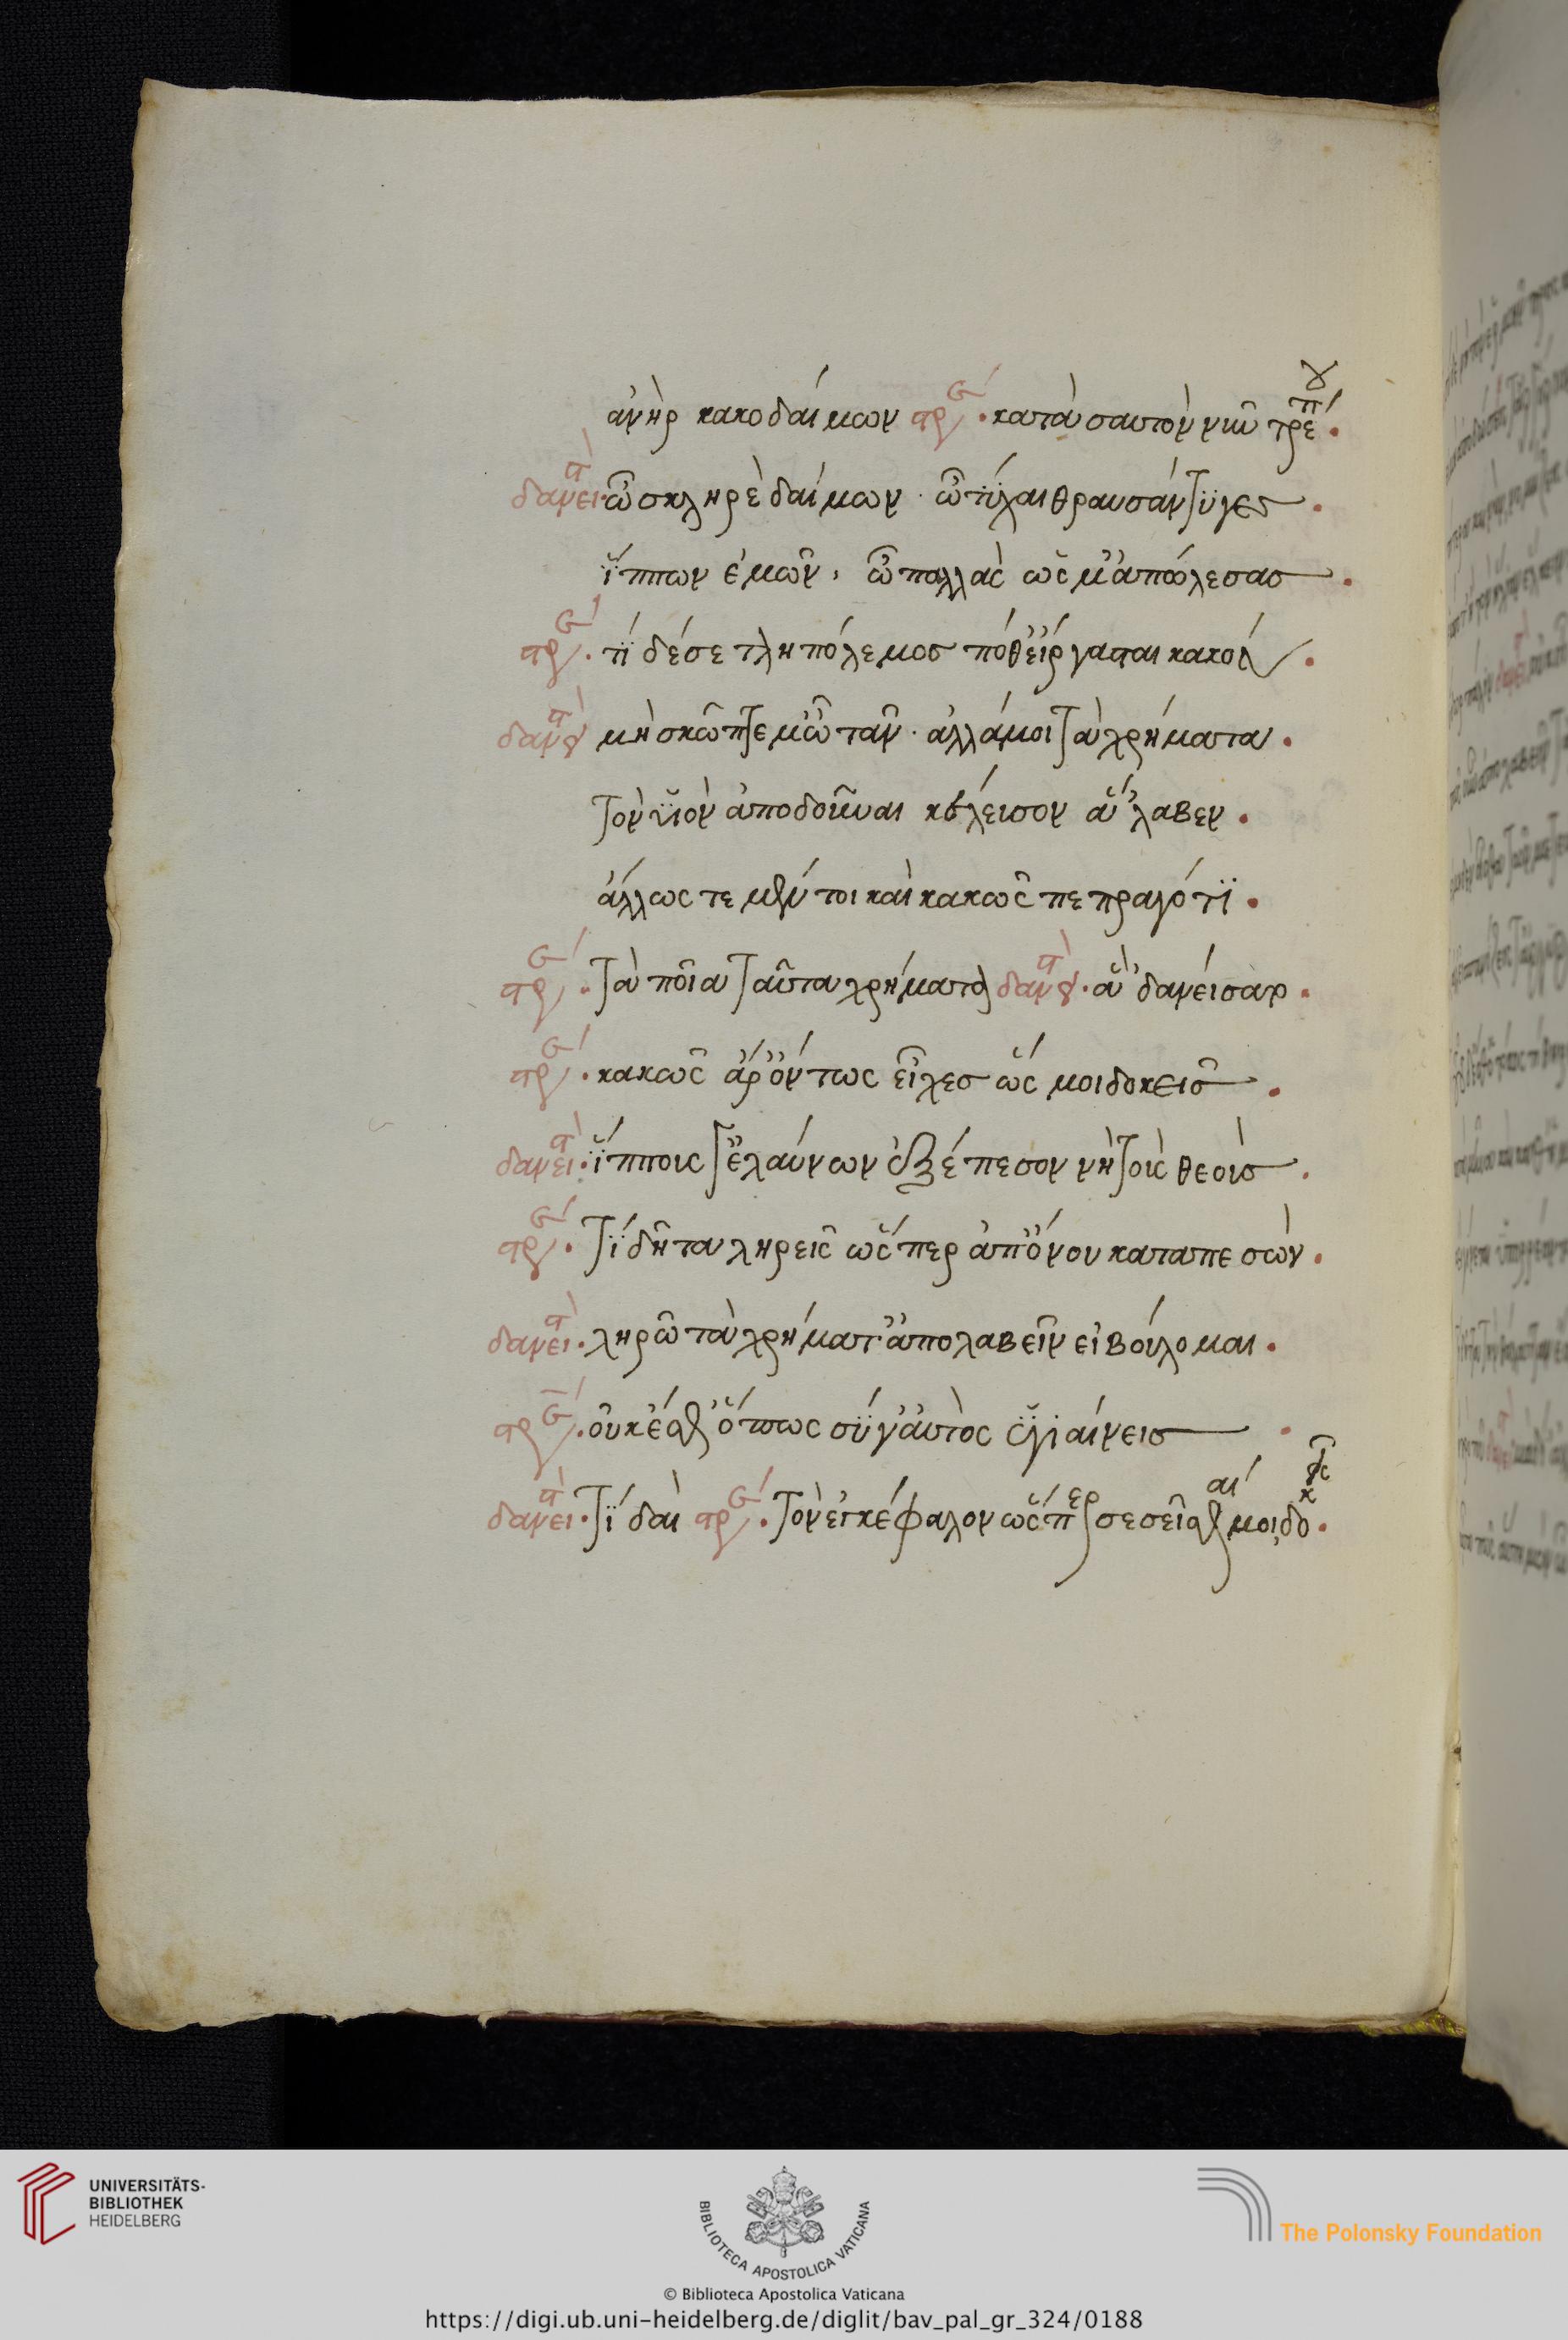 ἀνὴρ κακοδαίμων πρε · κατὰ σαυτὸν νῦν τρέπου.
δανει ὦ σκληρὲ δαῖμον · ὦ τύχαι θραυσάντυγες.
ἵππων ἐμῶν, ὦ παλλὰς ὥς μ᾽ ἀπώλεσας.
πρε · τί δέ σε τληπόλεμος πότ᾽ εἴργασται κακόν.
δανει μὴ σκῶπτέ μ᾽ ὦ τᾶν · ἀλλά μοι τὰ χρήματα.
τὸν υἱὸν ἀποδοῦναι κέλευσον ἅ ᾽λαβεν.
ἄλλως τε μέν τοι καὶ κακῶς πεπραγότι.
πρε · τὰ ποῖα ταῦτα χρήματα δανει · ἃ ᾽δανεισάμην.
πρε · κακῶς ἄρ᾽ ὄντως εἶχες ὥς μοι δοκεῖς.
δανει · ἵππους γ᾽ ἐλαύνων ἐξέπεσον νὴ τοὺς θεούς.
πρε · τί δῆτα ληρεῖς ὥσπερ ἀπ᾽ ὄνου καταπεσών.
δανει · ληρῶ τὰ χρήματ᾽ ἀπολαβεῖν εἰ βούλομαι.
πρε · οὐκ ἔσθ᾽ ὅπως σύ γ᾽ αὐτὸς ὑγιαίνεις
δανει · τί δαὶ πρε · τὸν ἐγκέφαλον ὥσπερ σεσεῖσθαί μοι δοκεῖς.
UNIVERSITÄTS-
BIBLIOTHEK
HEIDELBERG
BIBLIOTECA APOSTOLICA VATICANA
The Polonsky Foundation
© Biblioteca Apostolica Vaticana
https://digi.ub.uni-heidelberg.de/diglit/bav_pal_gr_324/0188